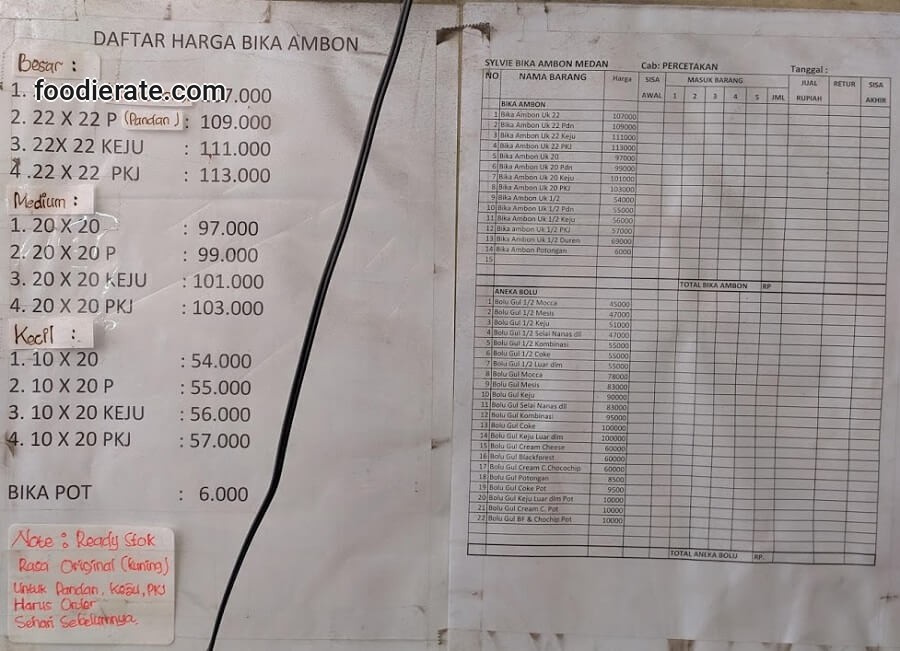 DAFTAR HARGA BIKA AMBON
Besar :
1. 7.000
foodierate.com
2. 22 X 22 P (Pandan) : 109.000
3. 22X 22 KEJU : 111.000
4 .22 X 22 PKJ : 113.000
Medium :
1. 20 X 20 : 97.000
2. 20 X 20 P : 99.000
3. 20 X 20 KEJU : 101.000
4. 20 X 20 PKJ : 103.000
Kecil :
1. 10 X 20 : 54.000
2. 10 X 20 P : 55.000
3. 10 X 20 KEJU : 56.000
4. 10 X 20 PKJ : 57.000
BIKA POT : 6.000
Note : Ready Stok
Rasa Original (kuning)
Untuk Pandan, Keju, PKJ
Harus Order
Sehari Sebelumnya.
SYLVIE BIKA AMBON MEDAN Cab: PERCETAKAN Tanggal :
NO NAMA BARANG Harga SISA AWAL MASUK BARANG 1 2 3 4 5 JML JUAL RUPIAH RETUR SISA AKHIR
BIKA AMBON
1 Bika Ambon Uk 22 107000
2 Bika Ambon Uk 22 Pdn 109000
3 Bika Ambon Uk 22 Keju 111000
4 Bika Ambon Uk 22 PKJ 113000
5 Bika Ambon Uk 20 97000
6 Bika Ambon Uk 20 Pdn 99000
7 Bika Ambon Uk 20 Keju 101000
8 Bika Ambon Uk 20 PKJ 103000
9 Bika Ambon Uk 1/2 54000
10 Bika Ambon Uk 1/2 Pdn 55000
11 Bika Ambon Uk 1/2 Keju 56000
12 Bika ambon Uk 1/2 PKJ 57000
13 Bika Ambon Uk 1/2 Duren 69000
14 Bika Ambon Potongan 6000
15
TOTAL BIKA AMBON RP
ANEKA BOLU
1 Bolu Gul 1/2 Mocca 45000
2 Bolu Gul 1/2 Mesis 47000
3 Bolu Gul 1/2 Keju 51000
4 Bolu Gul 1/2 Selai Nanas dll 47000
5 Bolu Gul 1/2 Kombinasi 55000
6 Bolu Gul 1/2 Coke 55000
7 Bolu Gul 1/2 Luar dlm 55000
8 Bolu Gul Mocca 78000
9 Bolu Gul Mesis 83000
10 Bolu Gul Keju 90000
11 Bolu Gul Selai Nanas dll 83000
12 Bolu Gul Kombinasi 95000
13 Bolu Gul Coke 100000
14 Bolu Gul Keju Luar dlm 100000
15 Bolu Gul Cream Cheese 60000
16 Bolu Gul Blackforest 60000
17 Bolu Gul Cream C.Chocochip 60000
18 Bolu Gul Potongan 8500
19 Bolu Gul Coke Pot 9500
20 Bolu Gul Keju Luar dlm Pot 10000
21 Bolu Gul Cream C. Pot 10000
22 Bolu Gul BF & Chochip Pot 10000
TOTAL ANEKA BOLU RP.